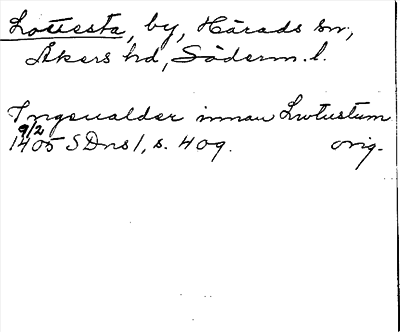 Lottesta, by, Härads sn,
Åkers hd, Söderm. l.
Ingeualder innan Lwtustum
9/2
1405 SDns 1, s. 409. orig.